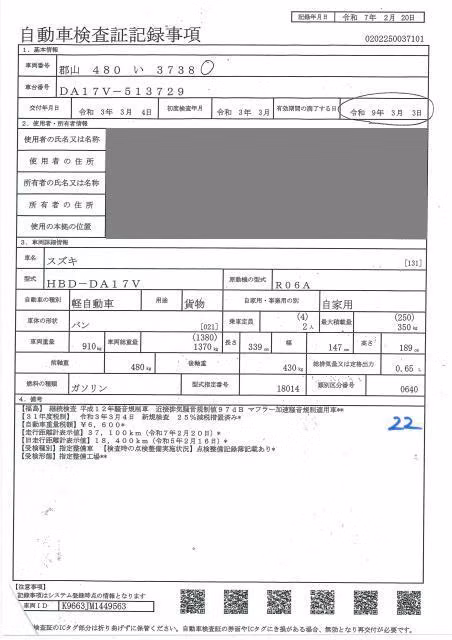 記録年月日 令和 7年 2月 20日
自動車検査証記録事項
0202250037101
1. 基本情報
車両番号 郡山 480 い 3738
車台番号 DA17V-513729
交付年月日 令和 3年 3月 4日 初度検査年月 令和 3年 3月 有効期間の満了する日 令和 9年 3月 3日
2. 使用者・所有者情報
使用者の氏名又は名称
使用者の住所
所有者の氏名又は名称
所有者の住所
使用の本拠の位置
3. 車両詳細情報
車名 スズキ [131]
型式 HBD-DA17V 原動機の型式 R06A
自動車の種別 軽自動車 用途 貨物 自家用・事業用の別 自家用
車体の形状 バン [021] 乗車定員 (4) 2人 最大積載量 (250) 350kg
車両重量 910kg 車両総重量 (1380) 1370kg 長さ 339cm 幅 147cm 高さ 189cm
前軸重 480kg 後軸重 430kg 総排気量又は定格出力 0.65 L
燃料の種類 ガソリン 型式指定番号 18014 類別区分番号 0640
4. 備考
【福島】 継続検査 平成12年騒音規制車 近接排気騒音規制値97dB マフラー加速騒音規制適用車**
【31年度税制】 令和3年3月4日 新規検査 25%減税措置済み*
【自動車重量税額】¥6,600*
【走行距離計表示値】37,100km(令和7年2月20日)*
【旧走行距離計表示値】18,400km(令和5年2月16日)*
【受検種別】指定整備車 【検査時の点検整備実施状況】点検整備記録簿記載あり*
【受検形態】指定整備工場**
22
【注意事項】
記録事項はシステム登録時点の情報となります
車両ID K9663JM1449563
検査証のICタグ部分は折り曲げずに保管ください。自動車検査証の券面やICタグにき損がある場合、無効となり再交付が必要です。